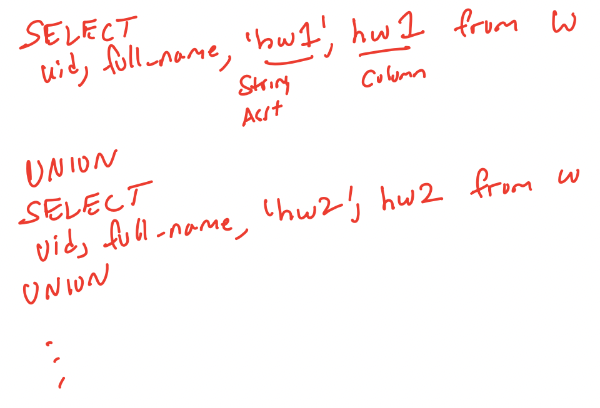 SELECT
uid, full_name, 'hw1', hw1 from W
String Column
UNION
SELECT
uid, full_name, 'hw2', hw2 from W
UNION